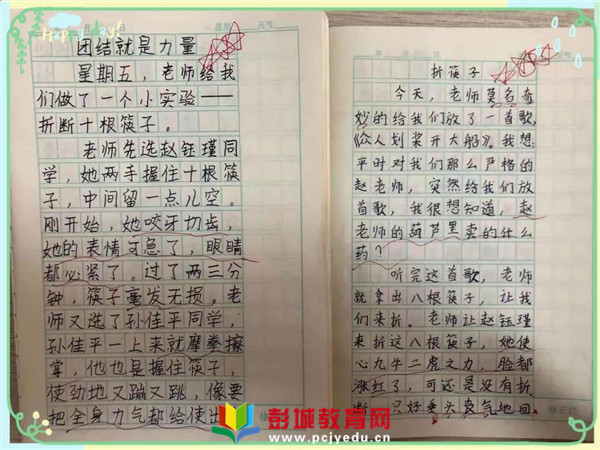 Happy day!
团结就是力量
星期五，老师给我
们做了一个小实验——
折断十根筷子。
老师先选赵钰瑾同
学，她两手握住十根筷
子，中间留一点儿空。
刚开始，她咬牙切齿，
她的表情可急了，眼睛
都必紧了。过了两三分
钟，筷子毫发无损。老
师又选了孙佳平同学，
孙佳平一上来就摩拳擦
掌，他也是握住筷子，
使劲地又蹦又跳，像要
把全身力气都给使出
折筷子
今天，老师莫名奇
妙的给我们放了一首歌，
《众人划桨开大船》。我想：
平时对我们那么严格的
赵老师，突然给我们放
首歌，我很想知道，赵
老师的葫芦里卖的什么
药？
听完这首歌，老师
就拿出八根筷子，让我
们来折。老师让赵钰瑾
来折这八根筷子，她使
心九牛二虎之力，脸都
涨红了，可还是没有折
断，只好垂头丧气地回
彭城教育网
www.pcjyedu.cn